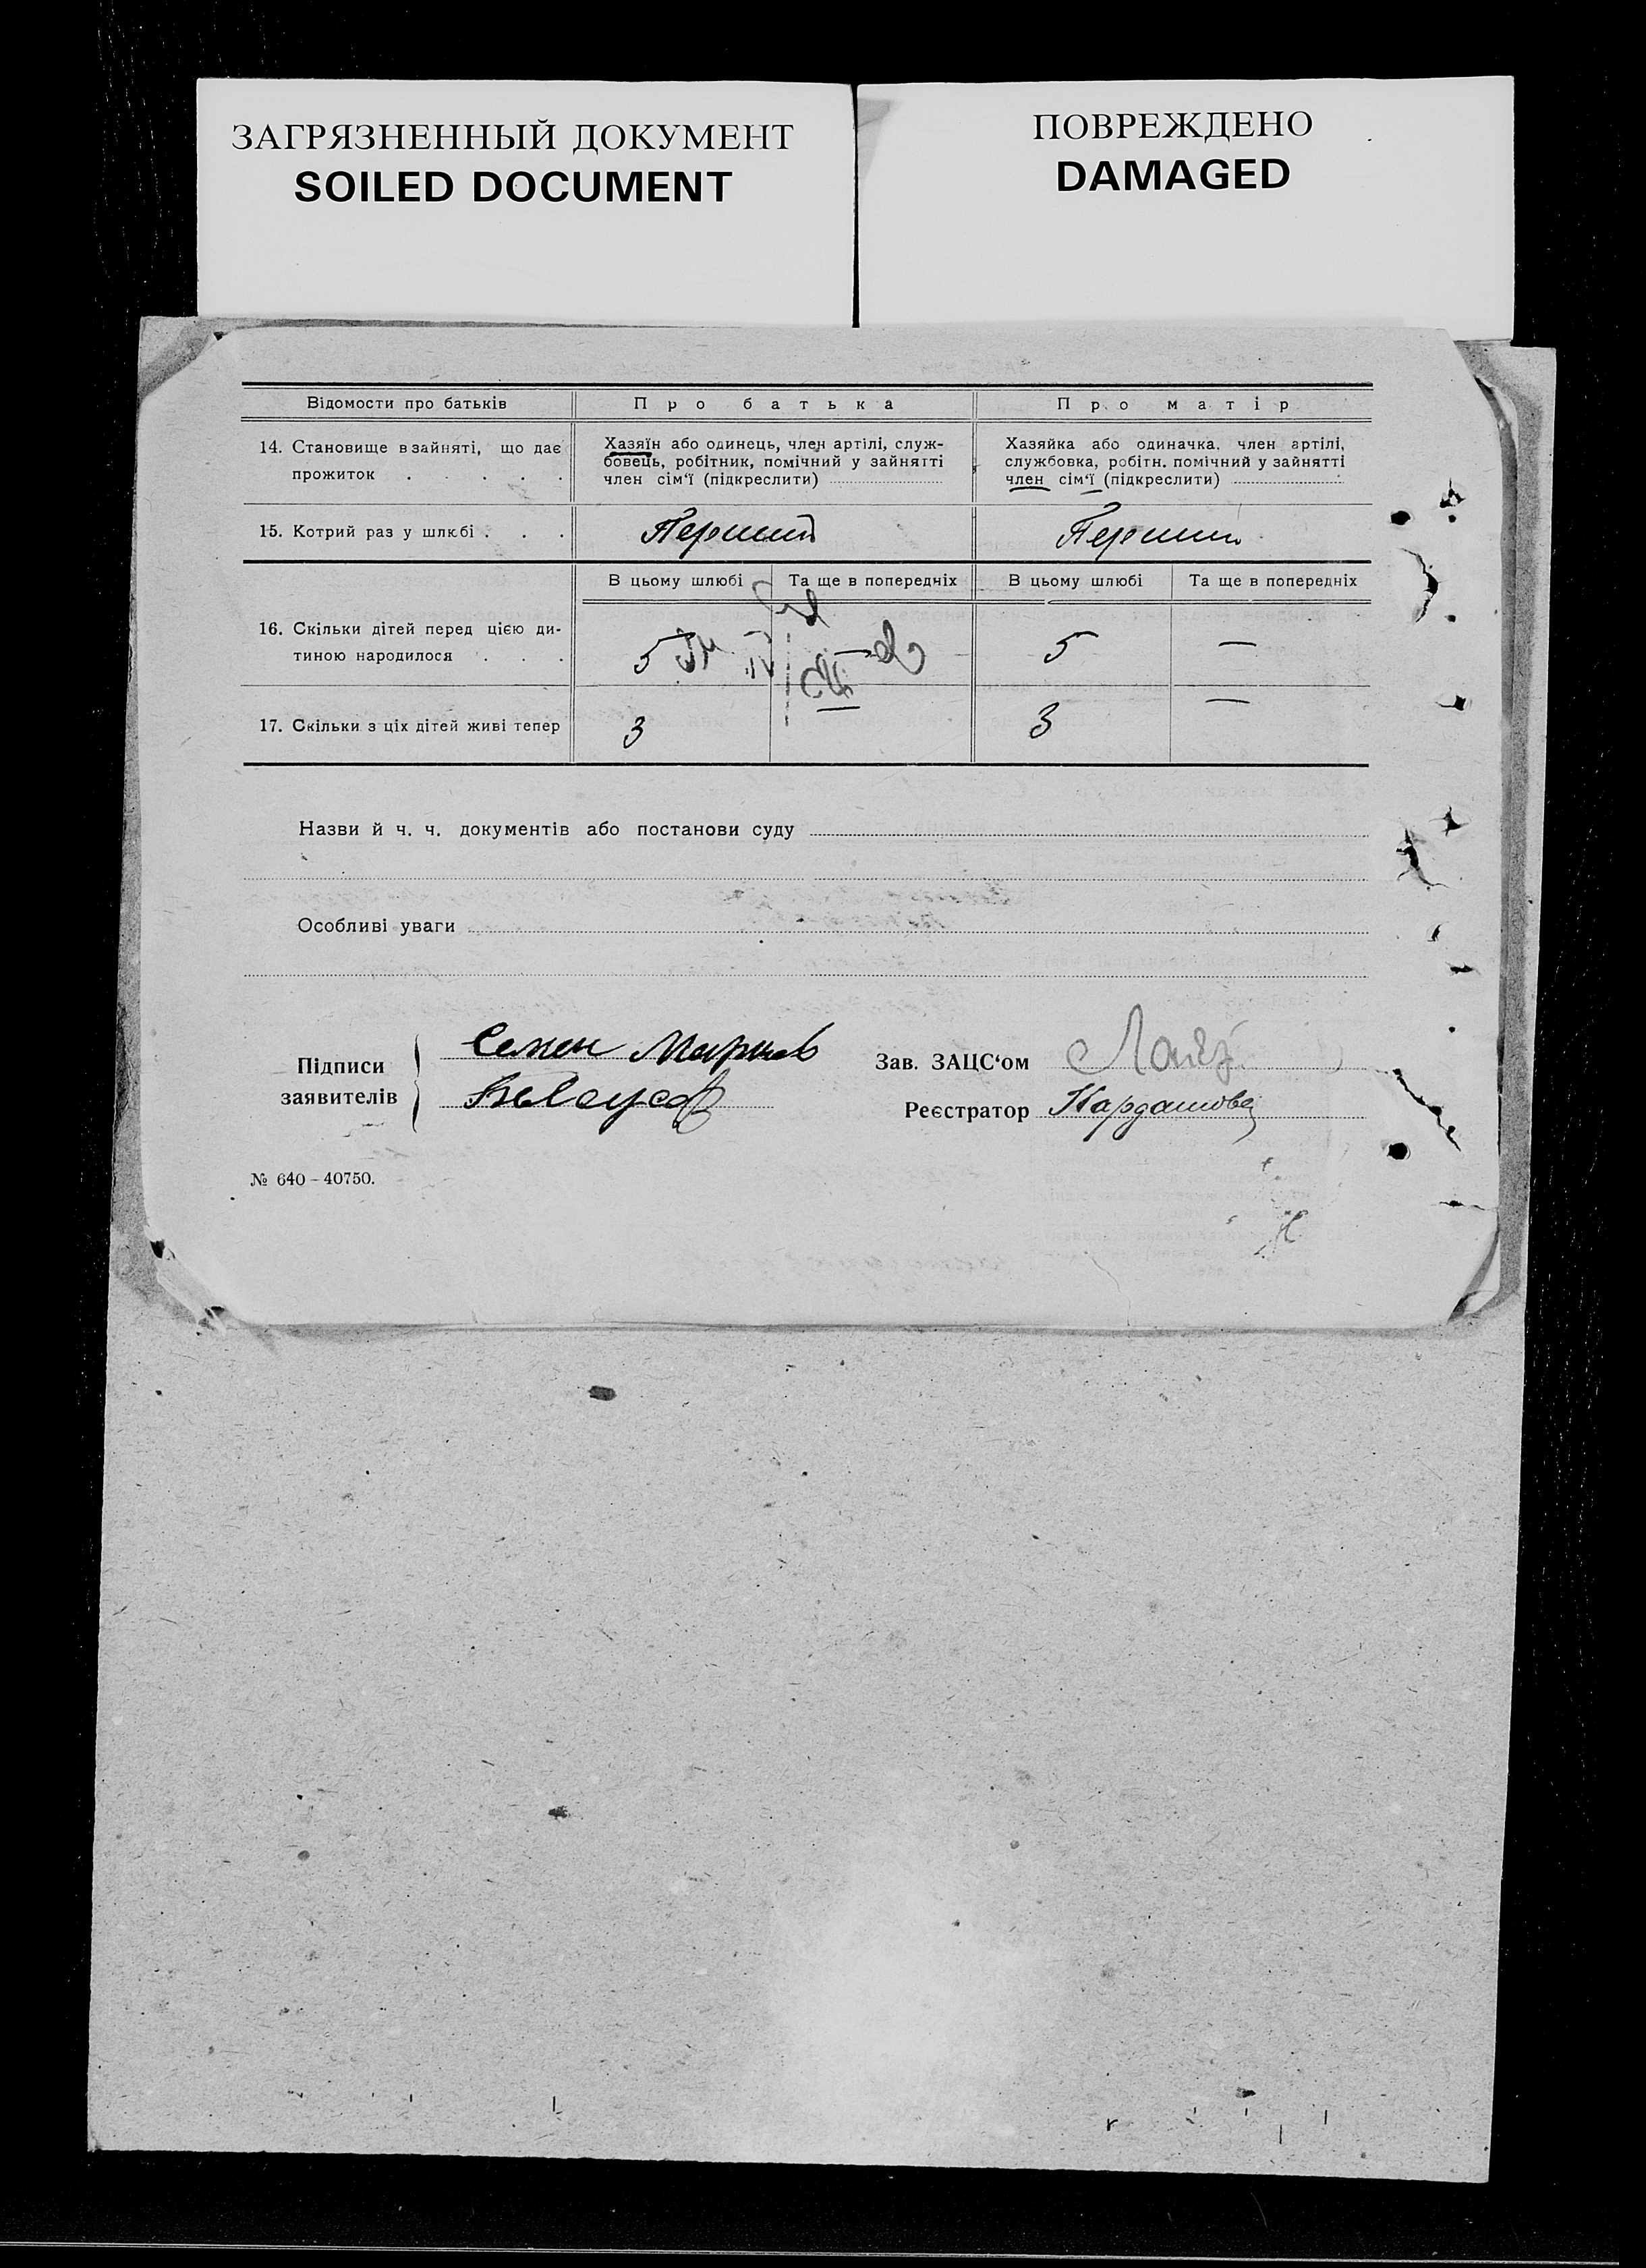 ЗАГРЯЗНЕННЫЙ ДОКУМЕНТ
SOILED DOCUMENT
ПОВРЕЖДЕНО
DAMAGED
Відомости про батьків
Про батька
Про матір
14. Становище в зайняті, що дає
прожиток . . . . .
Хазяїн або одинець, член артілі, служ-
бовець, робітник, помічний у зайнятті
член сім‘ї (підкреслити)
Хазяйка або одиначка, член артілі,
службовка, робітн. помічний у зайнятті
член сім‘ї (підкреслити)
15. Котрий раз у шлюбі . . .
Перший
Перший
В цьому шлюбі
Та ще в попередніх
В цьому шлюбі
Та ще в попередніх
16. Скільки дітей перед цією ди-
тиною народилося . . .
5
5
—
17. Скільки з ціх дітей живі тепер
3
3
—
Назви й ч. ч. документів або постанови суду
Особливі уваги
Підписи
заявителів
Семен
Белоусов
Зав. ЗАЦС‘ом
Реєстратор
Кардашова
№ 640 – 40750.